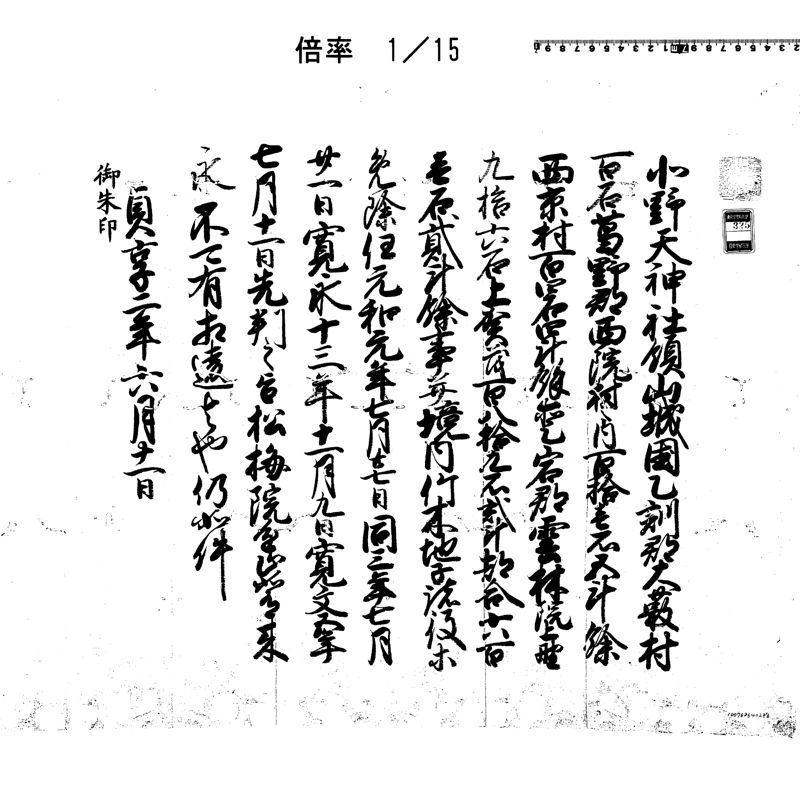 倍率 1/15
325
北野天神社領山城国乙訓郡大藪村
百石葛野郡西院村内百拾壱石五斗餘
西京村百石四斗餘愛宕郡雲林院
九拾六石上賀茂百八拾石貳斗都合六百
壱石貳斗餘事并境内竹木地子諸役等
免除任元和元年七月廿七日同三年七月
廿一日寛永十三年十一月九日寛文五年
七月十一日先判之旨松梅院至当来
永不可有相違者也仍如件
貞享二年六月十一日
御朱印